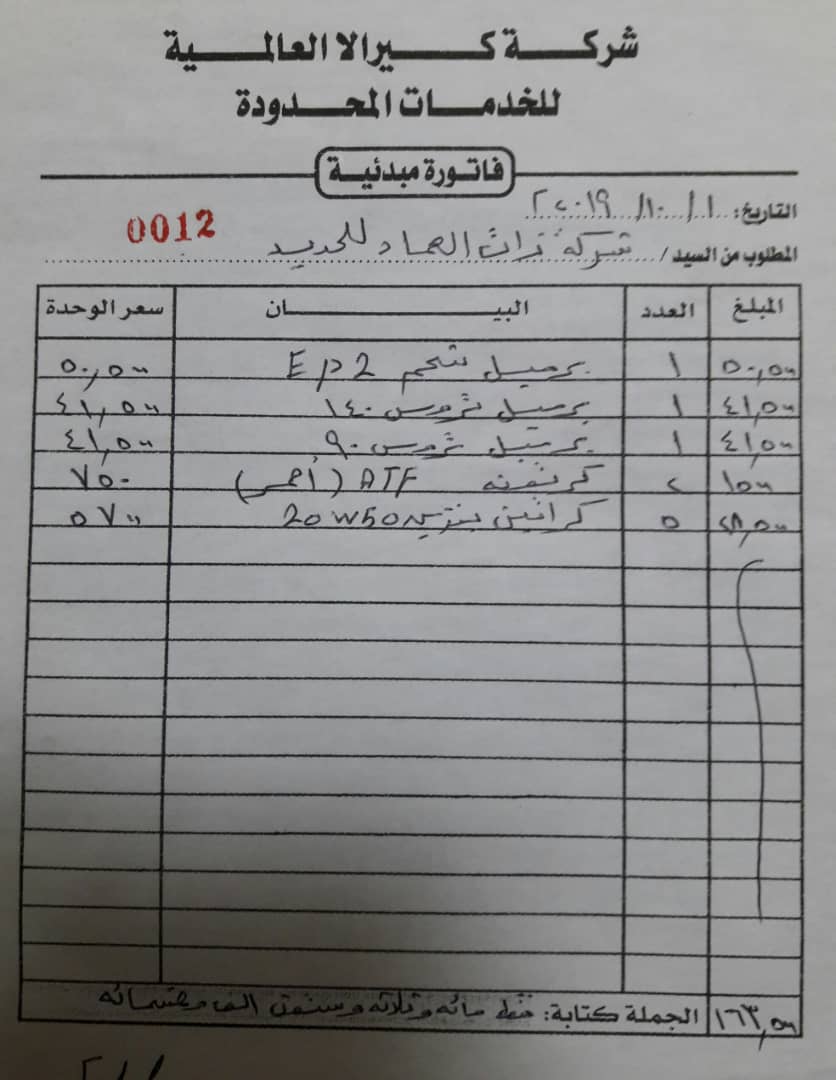 شركة كيرالا العالمية
للخدمات المحدودة
فاتورة مبدئية
التاريخ: ١/١٠/٢٠١٩
0012
المطلوب من السيد/ شركة زات العماد للحديد
المبلغ العدد البيان سعر الوحدة
٥٠,٥٠٠ ١ برميل شحم EP2 ٥٠,٥٠٠
٤١,٥٠٠ ١ برميل تروس ١٤٠ ٤١,٥٠٠
٤١,٥٠٠ ١ برميل تروس ٩٠ ٤١,٥٠٠
١٥٠٠ ٢ كرتونه ATF (أحمر) ٧٥٠
٢٨,٥٠٠ ٥ كراتين بنزين 20W50 ٥٧٠٠
١٦٣,٥٠٠ الجملة كتابة: فقط مائه وثلاثه وستون الف وخمسمائه